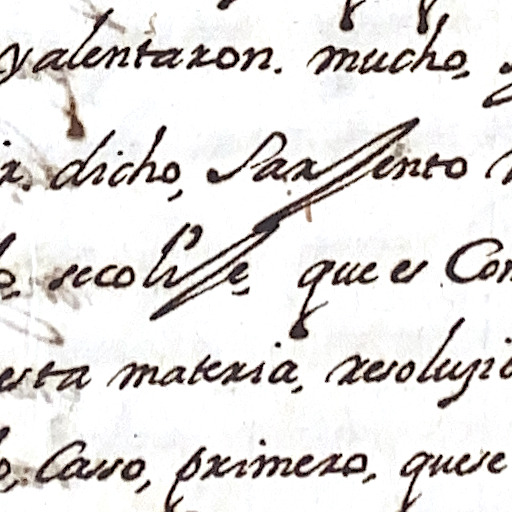 yalentaron. mucho,
dicho, Sarssento
secolisse, que es Con
esta materia, resoluzio
Caso, primero, quese